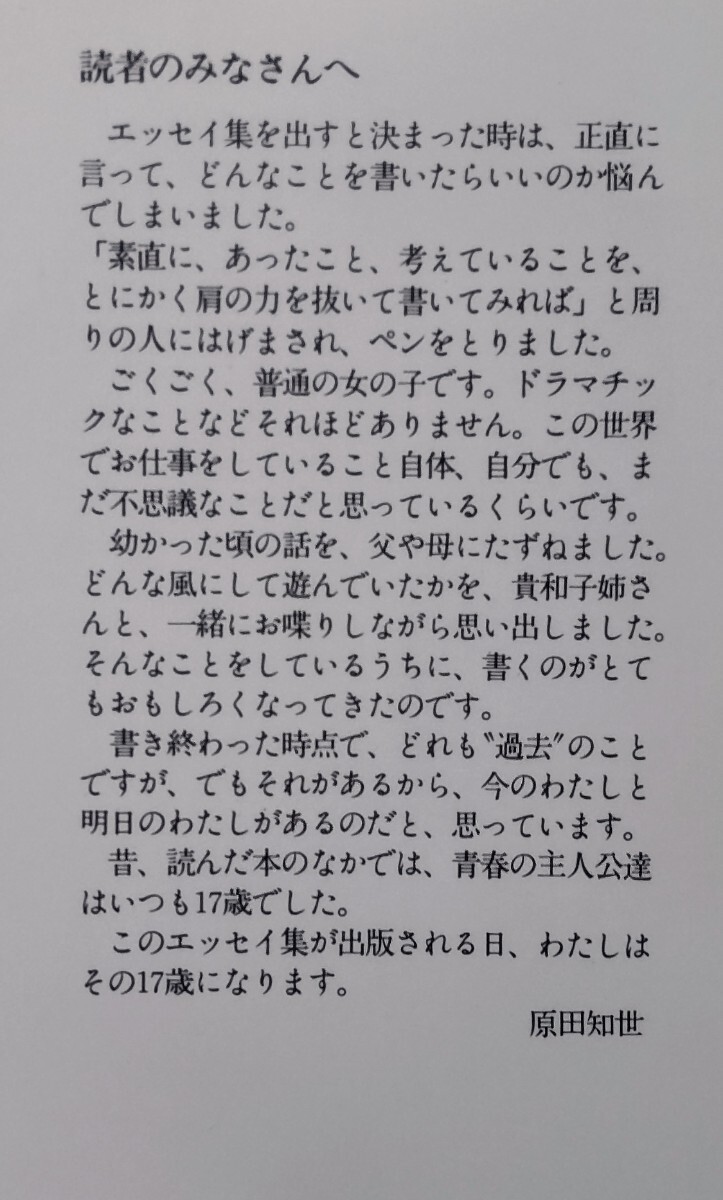 読者のみなさんへ
エッセイ集を出すと決まった時は、正直に
言って、どんなことを書いたらいいのか悩ん
でしまいました。
「素直に、あったこと、考えていることを、
とにかく肩の力を抜いて書いてみれば」と周
りの人にはげまされ、ペンをとりました。
ごくごく、普通の女の子です。ドラマチッ
クなことなどそれほどありません。この世界
でお仕事をしていること自体、自分でも、ま
だ不思議なことだと思っているくらいです。
幼かった頃の話を、父や母にたずねました。
どんな風にして遊んでいたかを、貴和子姉さ
んと、一緒にお喋りしながら思い出しました。
そんなことをしているうちに、書くのがとて
もおもしろくなってきたのです。
書き終わった時点で、どれも〝過去〟のこと
ですが、でもそれがあるから、今のわたしと
明日のわたしがあるのだと、思っています。
昔、読んだ本のなかでは、青春の主人公達
はいつも17歳でした。
このエッセイ集が出版される日、わたしは
その17歳になります。
原田知世